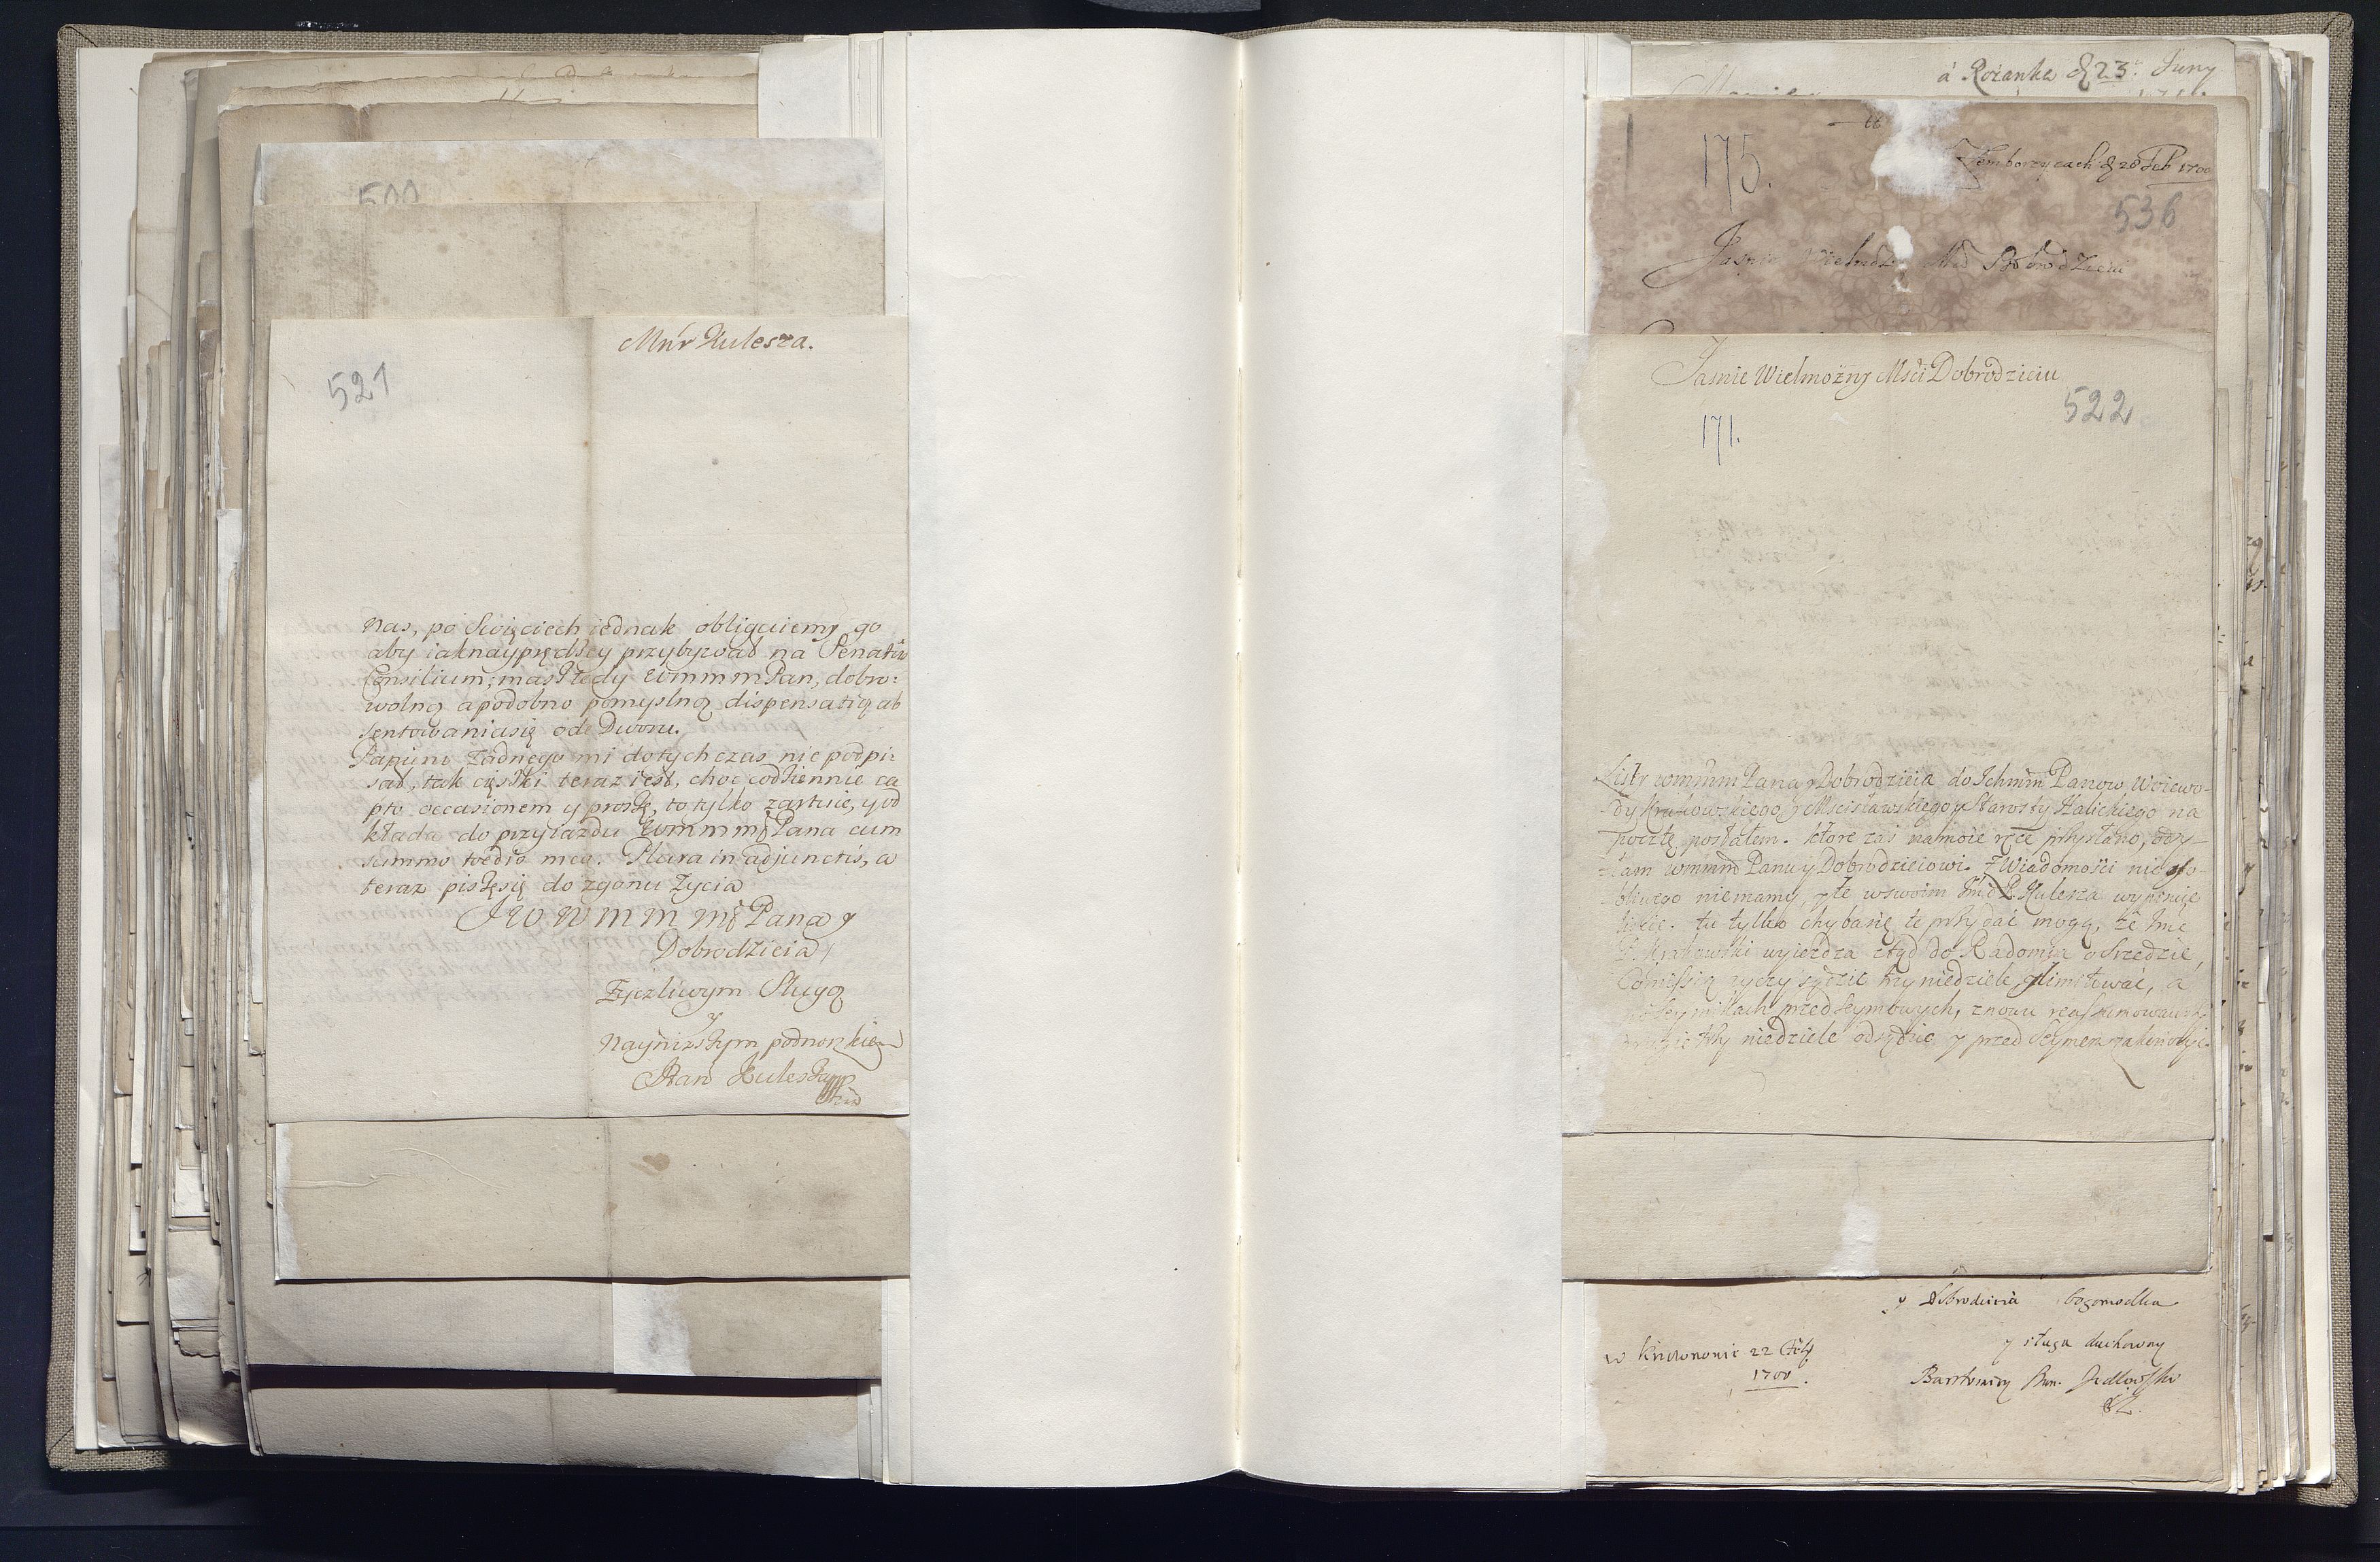 Mnr Kulesza.
521
nas, po Swięciech iednak obligaiemy go
aby iaknayprędszy przybywał na Senatûs
Consilium; masz tedy WMMMPan, dobro:
wolną a podobno pomyslną dispensatią ab
sentowania się ode Dworu.
Papieru żadnego mi dotychczas nie podpi
sał, tak cięszki teraz iest, choc codziennie ca
pto occasionem y proszę, to tylko zartuie, y od
kłada do przyiazdu WMMM Pana cum
summo tædio meo. Plura in adjunctis, a
teraz piszęsię do zgonu życia
JWWMMM Pana y
Dobrodzieia
Zyczliwym Sługą
y
Nayniższym podnozkiem
Stan Kulesza
500
á Rożanka d 23. Juny
175.
Zemborzycach d 28 Feb 1700
536
Jasnie Dobrodzieiu
Jasnie Wielmożny Mści Dobrodzieiu
522
171.
Listy WMMM Pana y Dobrodzieia do Ichmm Panow Woiewo-
dy Krakowskiego, y Mscisławskiego y Starosty Halickiego na
pocztę posłałem. ktore zas na moie ręce przysłano, odsy-
łam WMMM Panu y Dobrodzieiowi. Z Wiadomości nic oso-
bliwego niemamy, y te w swoim Jmć P. Kulesza wypisuie
liscie. tu tylko przydać mogę, że Jmć
P. Krakowski wyiezdza ztąd do Radomia o Srzedzie,
Comissią życzy sądzić trzy niedziele, y limitować, a
po Seymikach przedseymowych, znowu reassumowawszy
trzy niedziele odsądzić y przed Seymem zakończyć.
y Dobrodzieia bogomodlca
y sługa duchowny
w 22 Feb
1700.
Bartłomiey